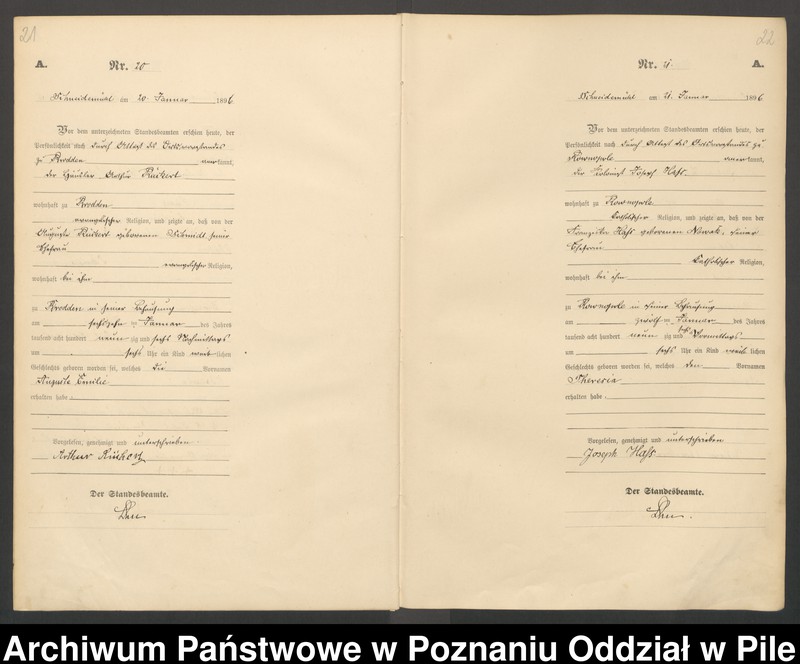 21
A.
Nr. 20
Schneidemühl am 20 Januar 1896
Vor dem unterzeichneten Standesbeamten erschien heute, der
Persönlichkeit nach durch Attest des
zu kannt,
der Händler Arthur Rückert
wohnhaft zu
evangelischer Religion, und zeigte an, daß von der
Auguste Rückert geborenen Schmidt seiner
Ehefrau
evangelischer Religion,
wohnhaft bei ihm
zu in seiner Behausung
am sechszehn ten Januar des Jahres
tausend acht hundert neun zig und sechs Nachmittags
um sechs Uhr ein Kind weib lichen
Geschlechts geboren worden sei, welches die Vornamen
Auguste Emilie
erhalten habe
Vorgelesen, genehmigt und unterschrieben
Arthur Rückert
Der Standesbeamte.
22
Nr. 21
A.
Schneidemühl am 21. Januar 1896
Vor dem unterzeichneten Standesbeamten erschien heute, der
Persönlichkeit nach durch Attest des zu
kannt,
der Joseph Hass
wohnhaft zu
katholischer Religion, und zeigte an, daß von der
Hass geborenen Nowak, seiner
Ehefrau
katholischer Religion,
wohnhaft bei ihm
zu in seiner Behausung
am zwölf ten Januar des Jahres
tausend acht hundert neun zig und sechs Vormittags
um sechs Uhr ein Kind weib lichen
Geschlechts geboren worden sei, welches den Vornamen
Theresia
erhalten habe
Vorgelesen, genehmigt und unterschrieben
Joseph Hass
Der Standesbeamte.
Archiwum Państwowe w Poznaniu Oddział w Pile